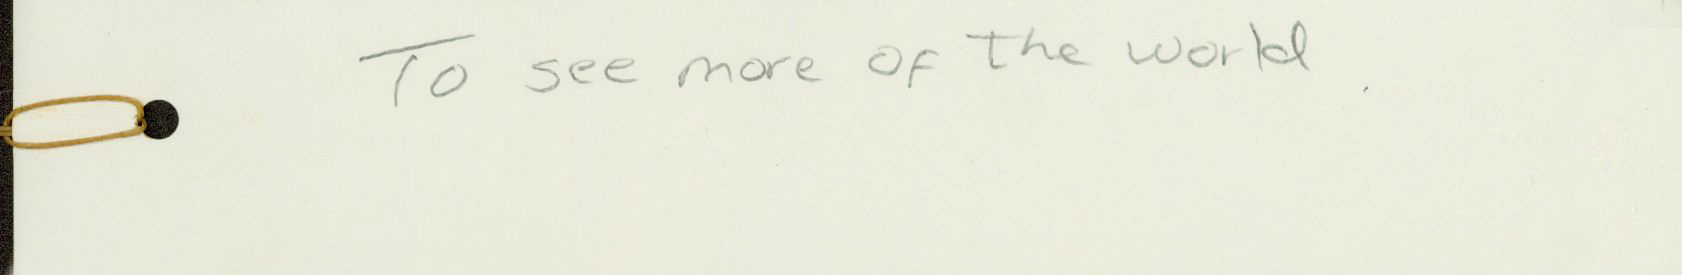 To see more of the world.